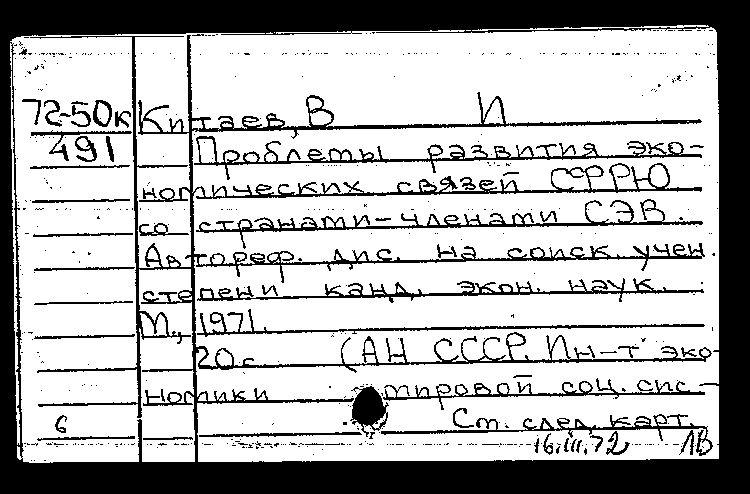 72-50к Китаев, В И
491 Проблемы развития эко-
номических связей СФРЮ
со странами-членами СЭВ.
Автореф. дис. на соиск. учен.
степени канд. экон. наук.
М., 1971.
20 с (АН СССР. Ин-т эко-
номики мировой соц. сис-
6 См. след. карт.
16.III.72 ЛВ